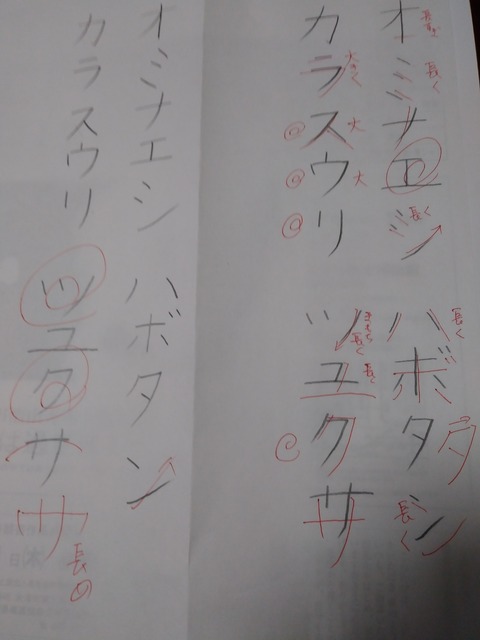 オミナエシ ハボタン
カラスウリ ツユクサ
オミナエシ ハボタン
カラスウリ ツユクサ
長く
長く
長く
大きく
大
大
長く
タ
長く
ン
長く
長く
サ
サ
長め